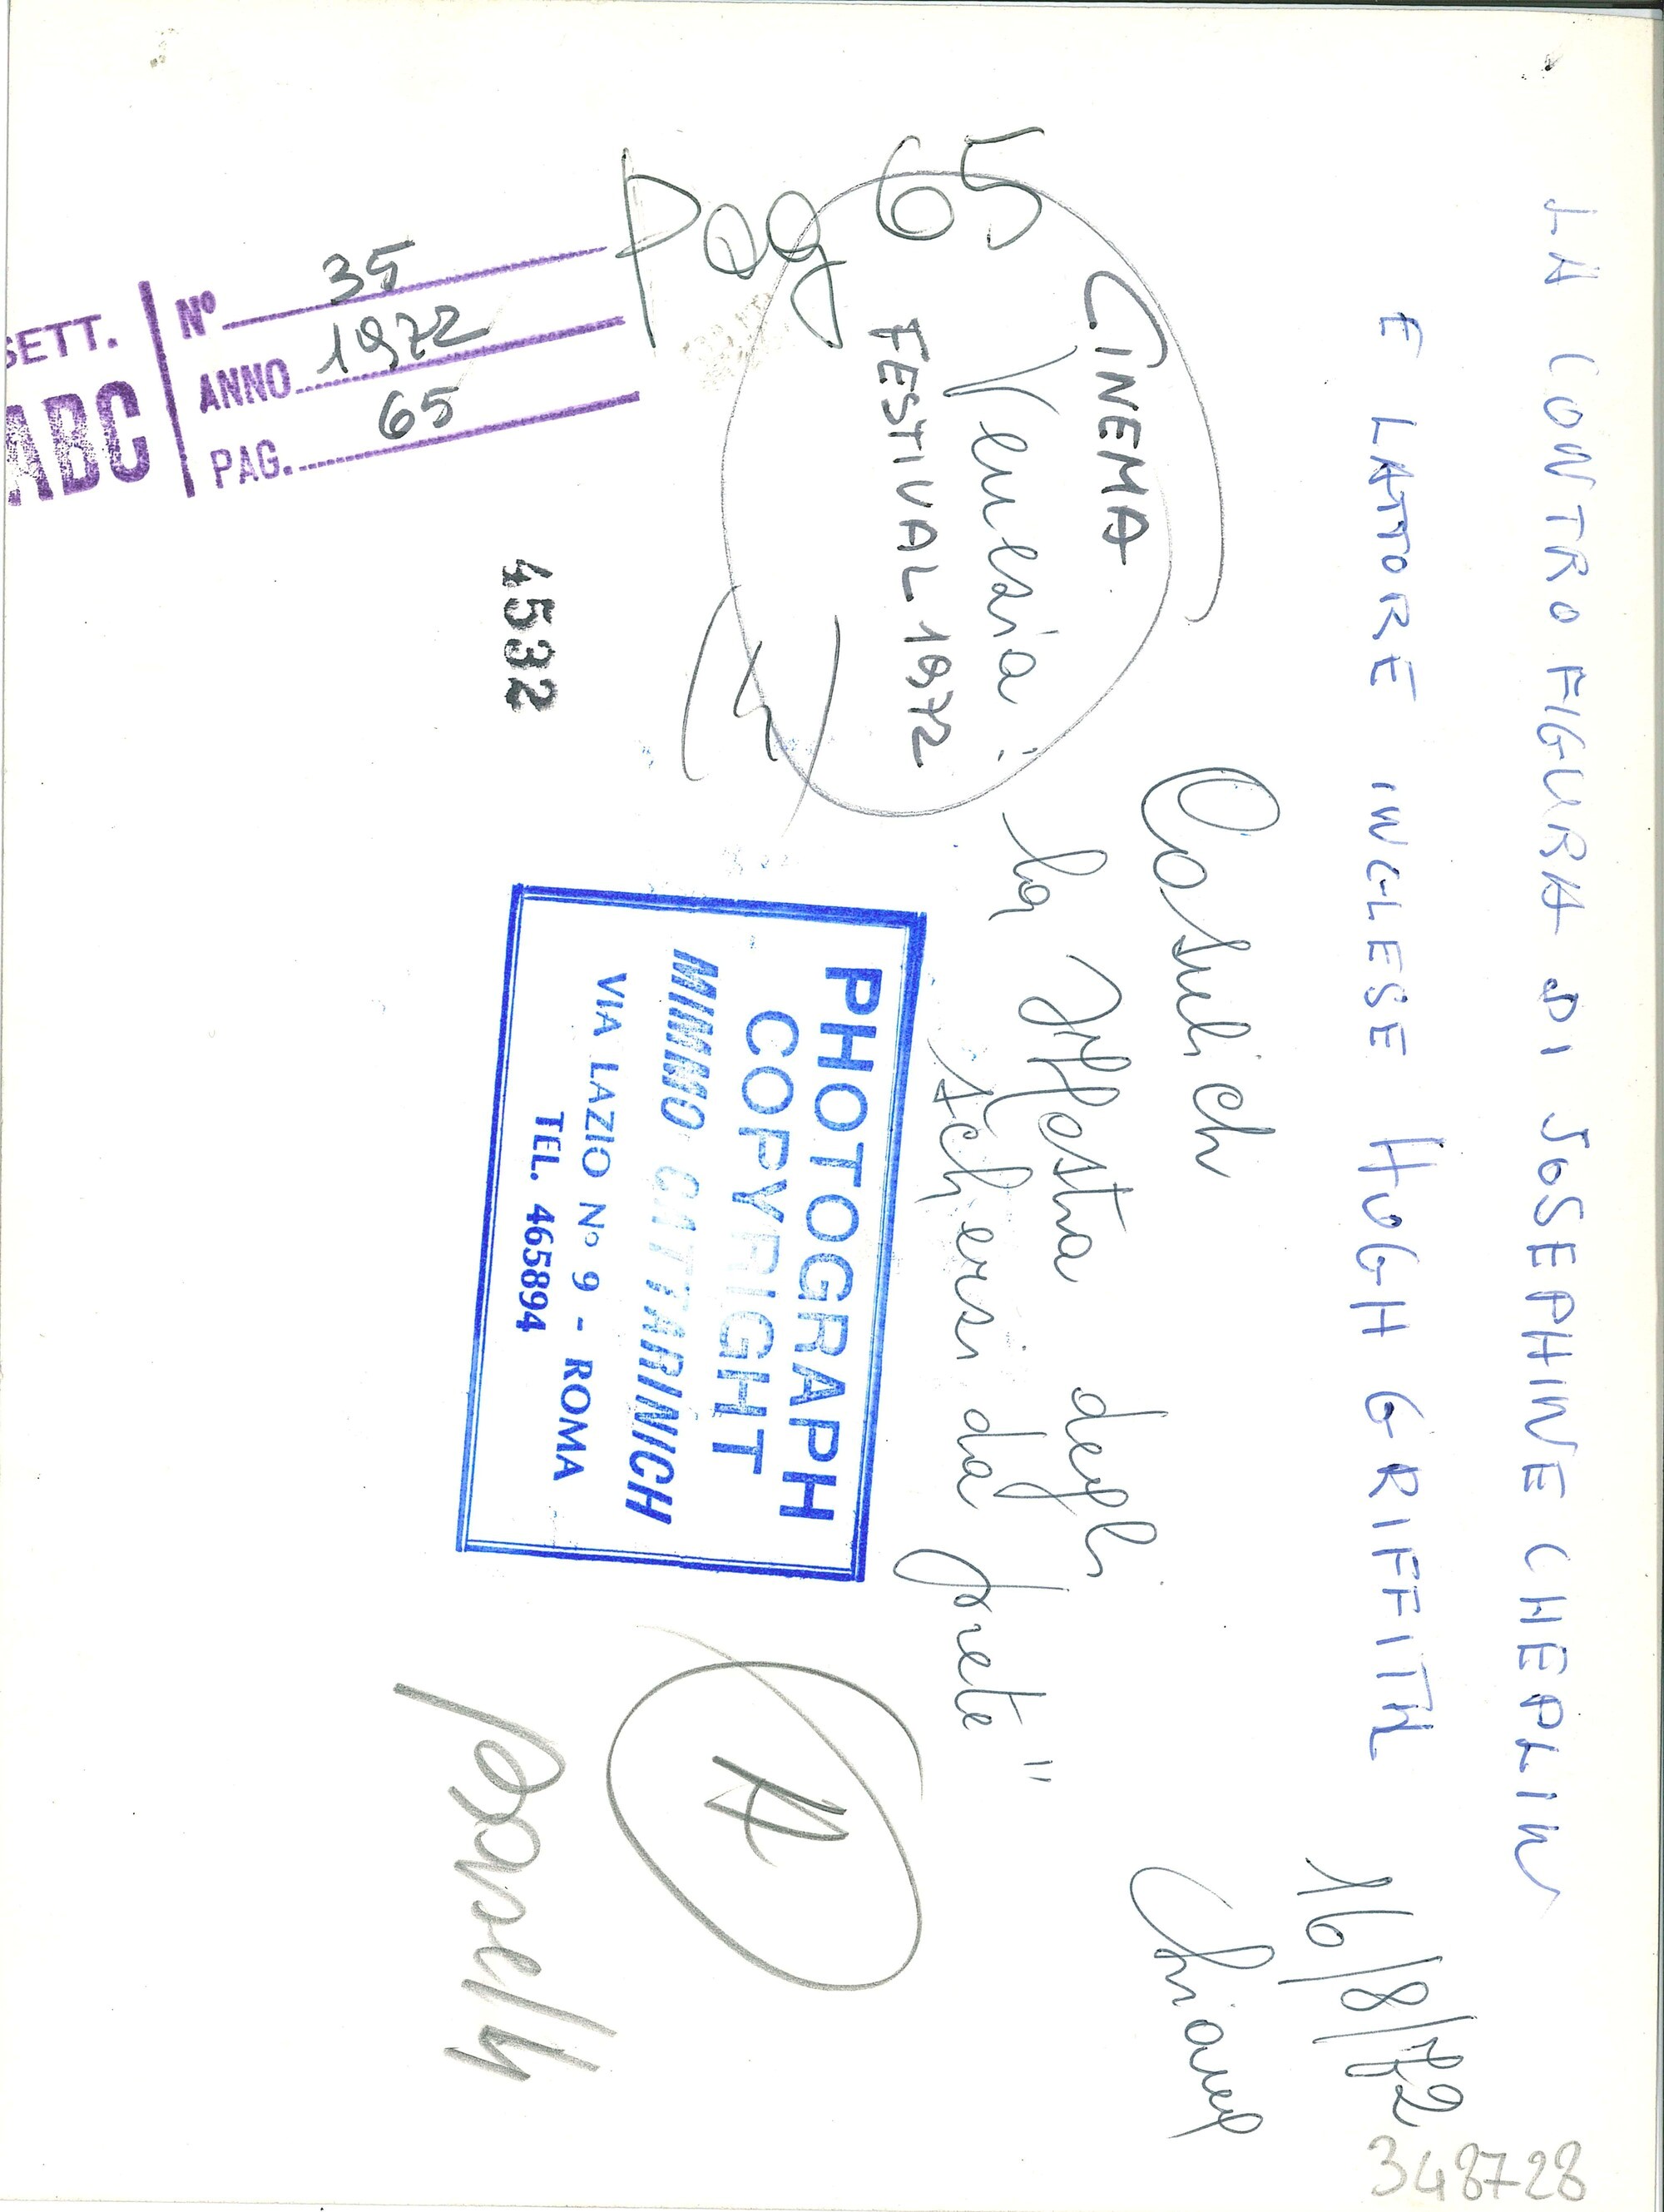 LA CONTROFIGURA DI JOSEPHINE CHEPLIN
E LATTORE INGLESE HUGH GRIFFITH
16/8/72
CINEMA
Venezia:
FESTIVAL 1972
65
pag
Cosulich
la
degli
scherzi da prete"
PHOTOGRAPH
COPYRIGHT
MIMMO CATTARINICH
VIA LAZIO No 9 - ROMA
TEL. 465894
4532
SETT.
ABC
Nº 35
ANNO 1972
PAG. 65
348728